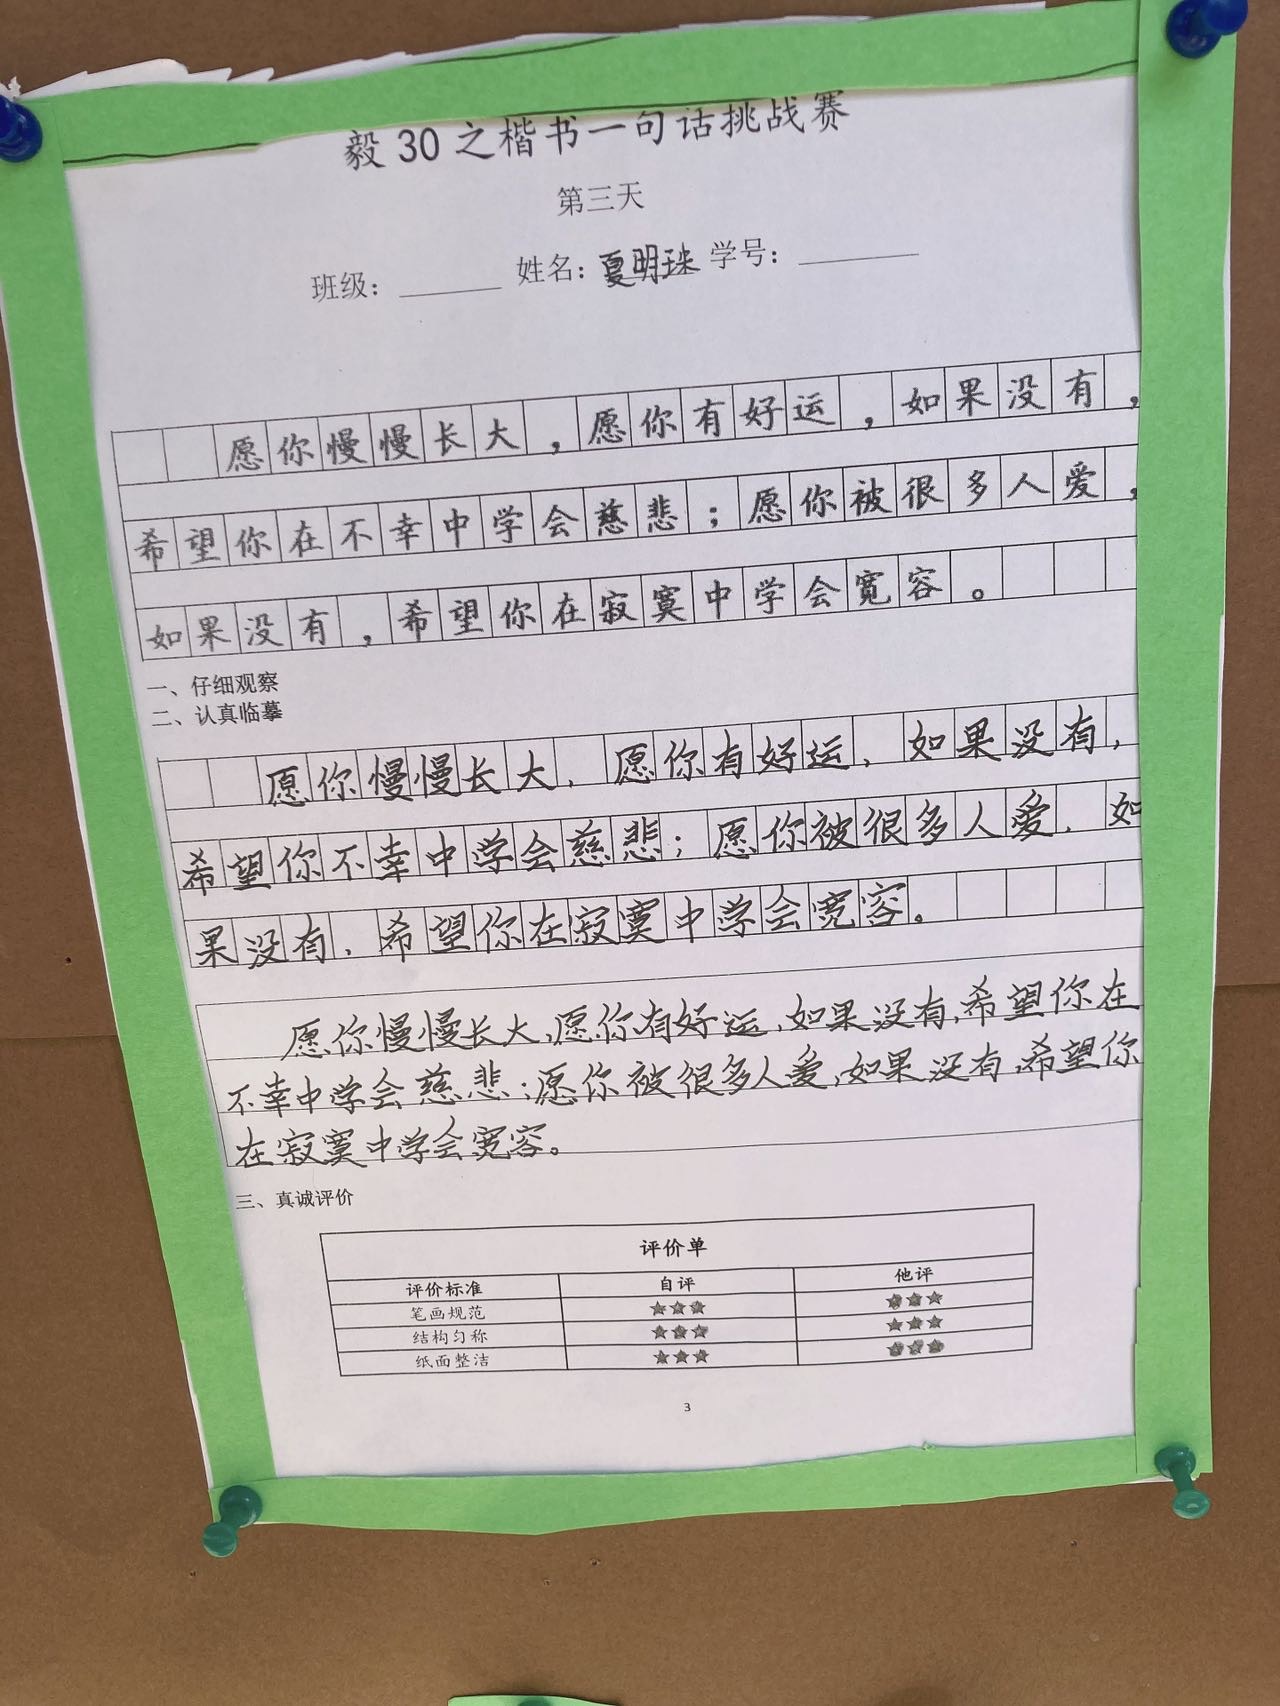 毅30之楷书一句话挑战赛
第三天
班级：______ 姓名：夏明珠 学号：______
愿你慢慢长大，愿你有好运，如果没有，
希望你在不幸中学会慈悲；愿你被很多人爱，
如果没有，希望你在寂寞中学会宽容。
一、仔细观察
二、认真临摹
愿你慢慢长大，愿你有好运，如果没有，
希望你不幸中学会慈悲；愿你被很多人爱，如
果没有，希望你在寂寞中学会宽容。
愿你慢慢长大，愿你有好运，如果没有，希望你在
不幸中学会慈悲；愿你被很多人爱，如果没有，希望你
在寂寞中学会宽容。
三、真诚评价
评价单
评价标准 自评 他评
笔画规范 ★★★ ★★★
结构匀称 ★★★ ★★★
纸面整洁 ★★★ ★★★
3